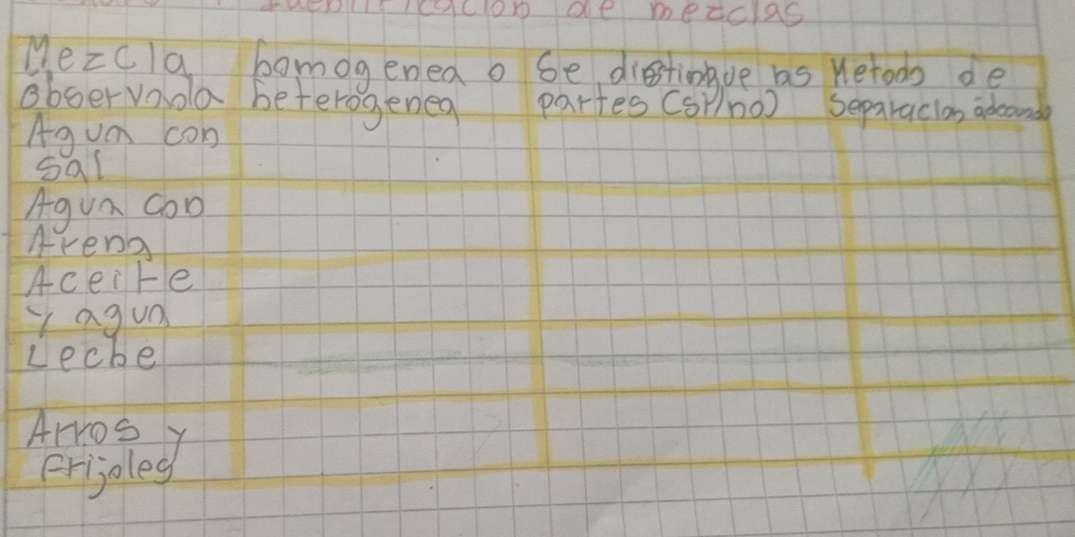 de mezclas
Mezcla homogenea o Se distingue las Metodo de
observada heterogenea partes (si/no) Separacion
Agua con
sal
Agua con
Arena
Aceite
y agua
Leche
Arros y
Frijoles